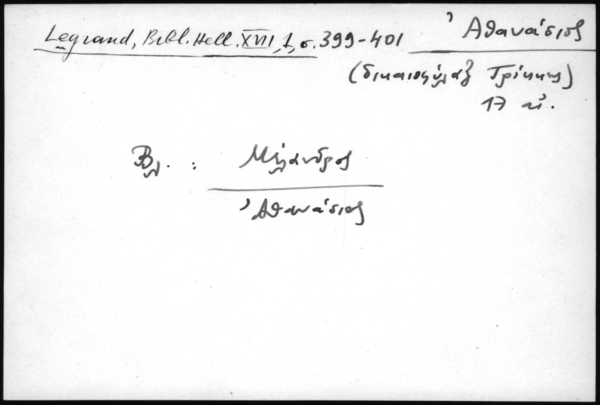 Legrand, Bibl. Hell. XVII, 1, σ. 399-401 Ἀθανάσιος
(δικαιοφύλαξ Τρίκκης)
17 αἰ.
Βλ. : Μέλανδρος
Ἀθανάσιος